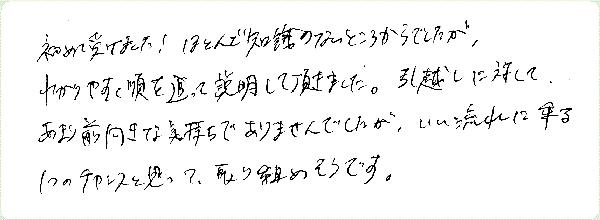 初めて受けました！ほとんど知識のないところからでしたが、
わかりやすく順を追って説明して頂きました。引越しに対して、
あまり前向きな気持ちでありませんでしたが、いい流れに乗る
1つのチャンスと思って、取り組めそうです。